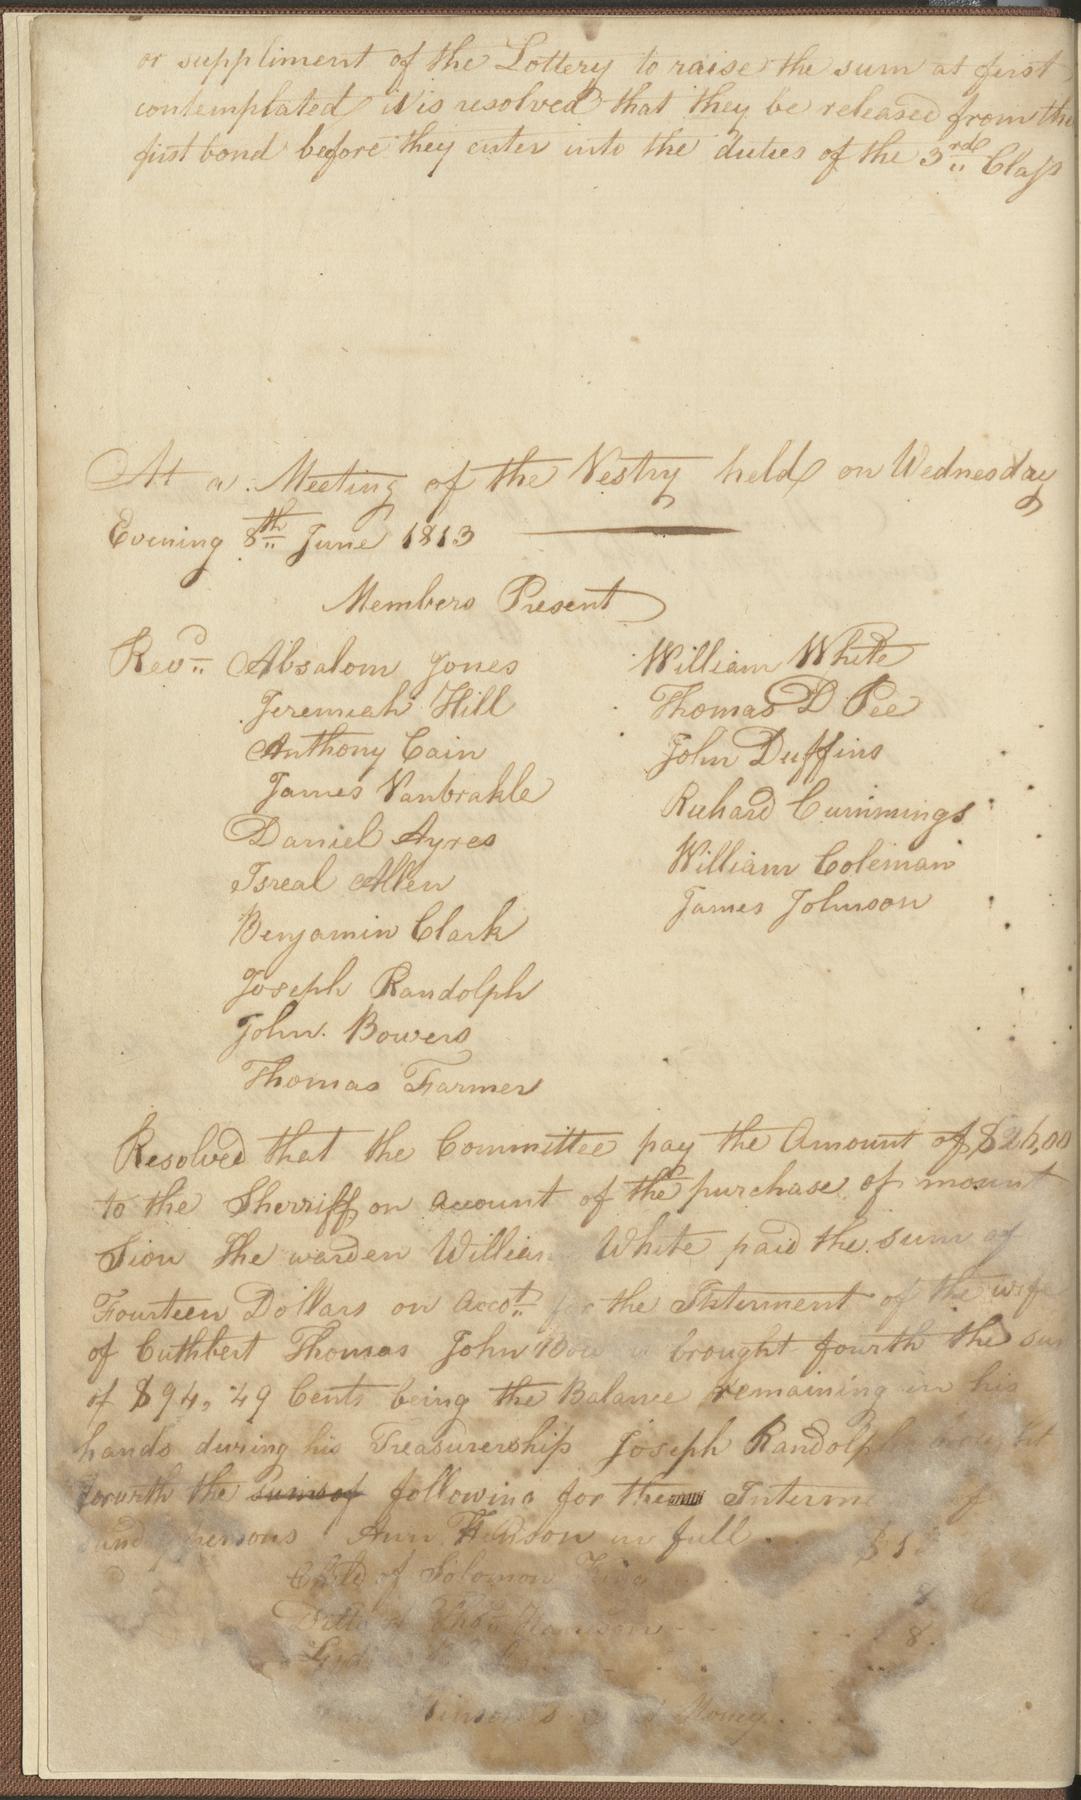 or suppliment of the Lottery to raise the sum at first
contemplated it is resolved that they be released from the
first bond before they enter into the duties of the 3rd Class
At a Meeting of the Vestry held on Wednesday
Evening 8th June 1813
Members Present
Revd Absalom Jones
Jeremiah Hill
Anthony Cain
James Vanbrakle
Daniel Ayres
Isreal Allen
Benjamin Clark
Joseph Randolph
John Bowers
Thomas Farmer
William White
Thomas D Pee
John Duffins
Richard Cummings
William Coleman
James Johnson
Resolved that the Committee pay the Amount of $26,00
to the Sherriff on account of the purchase of mount
Sion The warden William White paid the sum of
Fourteen Dollars on Accot for the Interment of the wife
of Cuthbert Thomas John brought fourth the sum
of $94,,49 Cents being the Balance remaining in his
hands during his Treasurership Joseph Randolph brought
forurth the sums of following for the Interment of
persons Ann in full $1
Child of Solomon King 8
Ditto of Thos 8
Money